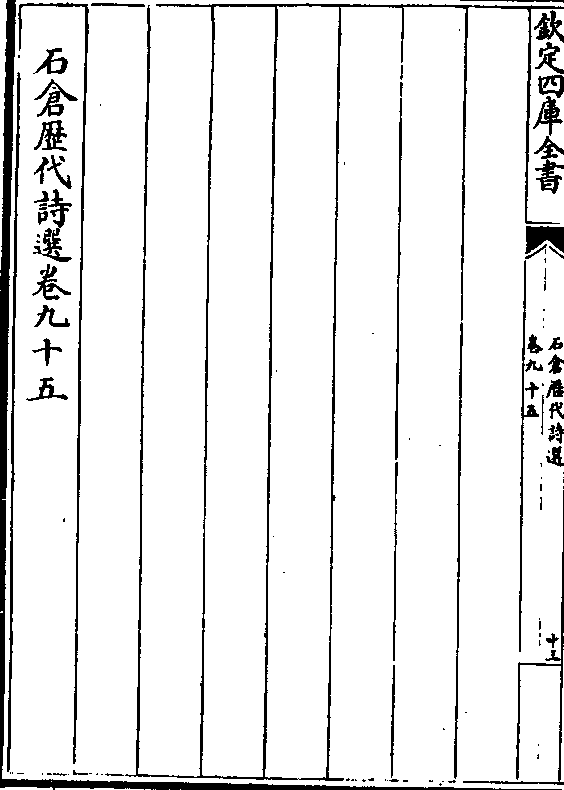 欽定四庫全書
石倉歷代詩選
卷九十五
十三
石倉歷代詩選卷九十五